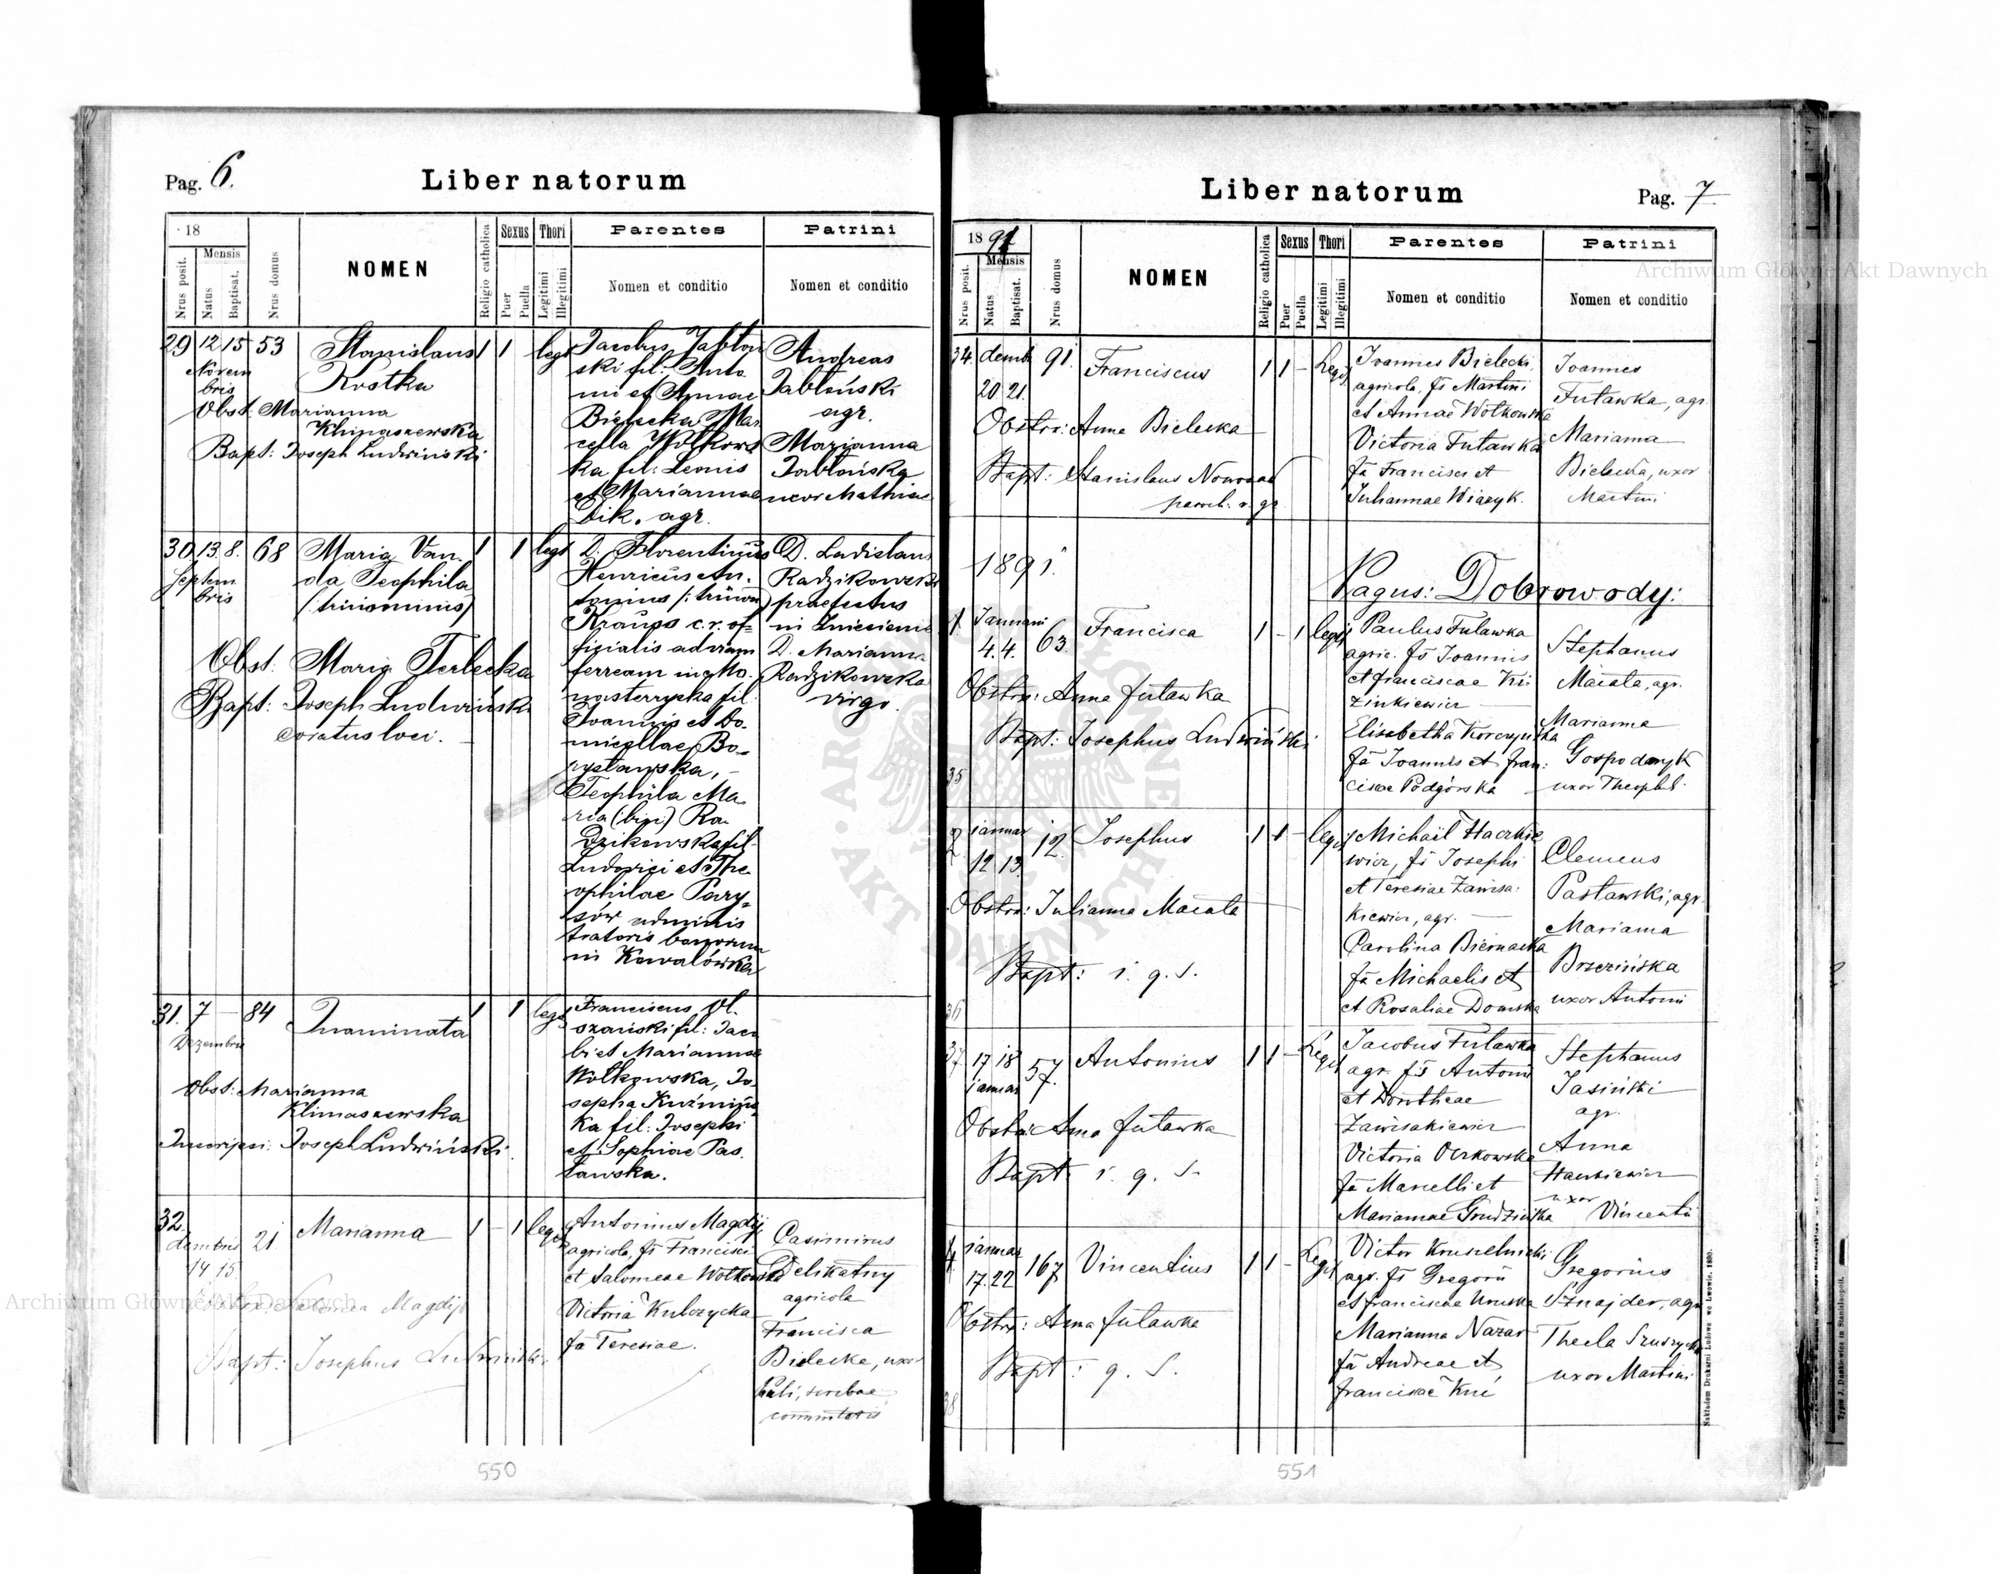 Pag. 6.
Liber natorum
18
Mensis
Nrus posit.
Natus
Baptisat.
Nrus domus
NOMEN
Religio catholica
Sexus
Puer
Puella
Thori
Legitimi
Illegitimi
Parentes
Nomen et conditio
Patrini
Nomen et conditio
29 12 15 53
Novem
bris
Stanislaus
Kostka
1 1 legt
Obst: Marianna
Klimaszewska
Bapt: Joseph Ludwiński
Jacobus Jabłoń
ski fil: Anto
nii et Annae
Bielecka Mar
cella Wołkows
ka fil: Leonis
et Mariannae
Bik. agr.
Andreas
Jabłoński
agr.
Marianna
Jabłońska
uxor Mathiae
30. 13. 8. 68
Septem
bris
Maria Van
da Teophila
(trinominis)
1 1 legt
Obst: Maria Terlecka
Bapt: Joseph Ludwiński
Florentinus
Henricus An
tonius
Kraups c. r. of
ficialis ad viam
ferream in Mo
nasterzyska fil
Joannis et Do
micellae Bo
rysławska,
Teophila Ma
ria (bin) Ra
dzikowska fil
Ludovici et The
ophilae Pary
sów adminis
tratoris bonorum
in Kowalówka
D. Ladislaus
Radzikowski
praefectus
D. Marianna
Radzikowska
virgo.
31. 7 — 84
Dezembris
Innominata
1 1 legt
Obst: Marianna
Klimaszewska
Inscripsi: Joseph Ludwiński.
Franciscus Ol
szański fil: Jaco
bi et Mariannae
Wołkowska, Jo
sepha Kuźmińs
ka fil: Josephi
et Sophiae Pas
ławska.
32.
21
14 15
Marianna
1 — 1
Obstrx: Salomea Magdij
Bapt: Josephus Ludwiński
Antonius Magdij
agricola, fs Francisci
et Salomeae Wołkowska
Victoria Kulczycka
fa Teresiae.
Casimirus
Delikatny
agricola
Francisca
Bielecka, uxor
Pauli, scribae
550
Liber natorum
Pag. 7
1891
Mensis
Nrus posit.
Natus
Baptisat.
Nrus domus
NOMEN
Religio catholica
Sexus
Puer
Puella
Thori
Legitimi
Illegitimi
Parentes
Nomen et conditio
Patrini
Nomen et conditio
34. demb 91
20 21.
Franciscus
1 1 —
Obstrx: Anna Bielecka
Bapt: Stanislaus Nowosad
Joannes Bielecki,
agricola, fs Martini
et Annae Wołkowska
Victoria Futawka
fa Francisci et
Julianae Wiązyk.
Joannes
Futawka, agr.
Marianna
Bielecka, uxor
Martini
1891.
Pagus: Dobrowody:
1 Januarii
4. 4. 63.
Francisca
1 — 1
Obstrx: Anna Futawka
Bapt: Josephus Ludwiński
Paulus Futawka
agric. fs Joannis
et Franciscae Kü
zinkiewicz
Elisabetha Korczyńska
fa Joannis et Fran:
ciscae Podgórska
Stephanus
Macała, agr.
Marianna
Gospodaryk
uxor Theophil.
35
2 januar 12
12 13.
Josephus
1 1 —
Obstrx: Julianna Macała
Bapt: i. q. s.
Michaël Haczkie
wicz, fs Josephi
et Teresiae Zawisa
kiewicz, agr.
Carolina Biernacka
fa Michaelis et
et Rosaliae Domska
Clemens
Pasławski, agr.
Marianna
Brzezińska
uxor Antonii
36
17 18 57
januar
Antonius
1 1 —
Obstrx: Anna Futawka
Bapt: i. q. s.
Jacobus Futawka
agr. fs Antonii
et Dorotheae
Zawisakiewicz
Victoria Ockowska
fa Marcelli et
Mariannae Grudzińska
Stephanus
Jasiński
agr.
Anna
Haczkiewicz
uxor
Vincentii
4 januar
17. 22 167
Vincentius
1 1 —
Obstrx: Anna Futawka
Bapt: q. s.
Victor Kruszelnicki
agr. fs Gregorii
et Franciscae
Marianna Nazar
fa Andreae et
Franciscae
Gregorius
Sznajder, agr
Thecla
uxor Martini
38
551
Nakładem Drukarni Ludowej we Lwowie. 1890.
Archiwum Główne Akt Dawnych
Archiwum Główne Akt Dawnych
ARCHIWUM GŁÓWNE AKT DAWNYCH